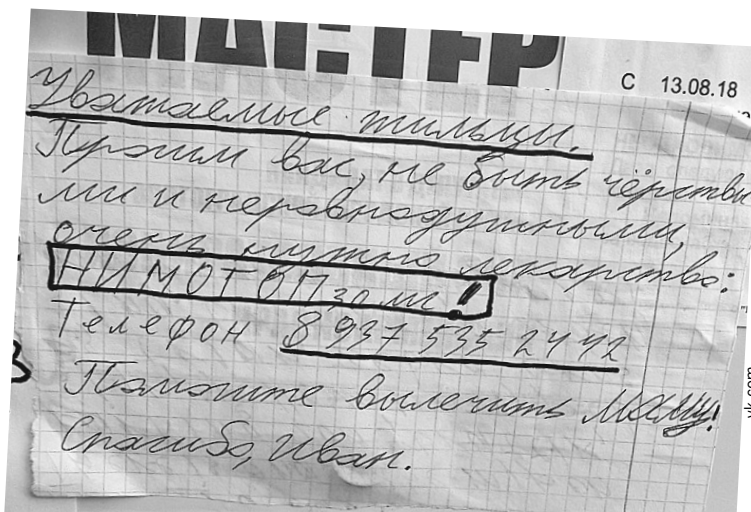 МАСТЕР
С 13.08.18
Уважаемые жильцы.
Просим вас, не быть чёрствы
ми и неравнодушными,
очень нужно лекарство:
НИМОТОП 30 мг!
Телефон 8 937 535 24 42
Помогите вылечить маму!
Спасибо, Иван.
vk.com